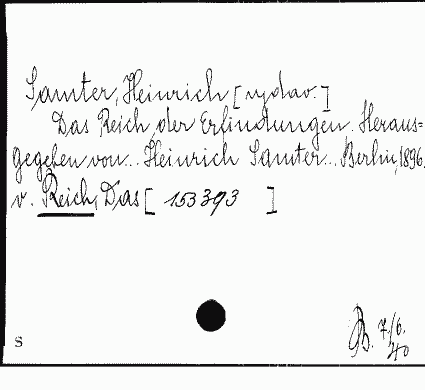 Samter, Heinrich [wydaw.]
Das Reich der Erfindungen. Heraus-
gegeben von.. Heinrich Samter.. Berlin, 1896.
v. Reich, Das [ 153393 ]
7/6.
40
S